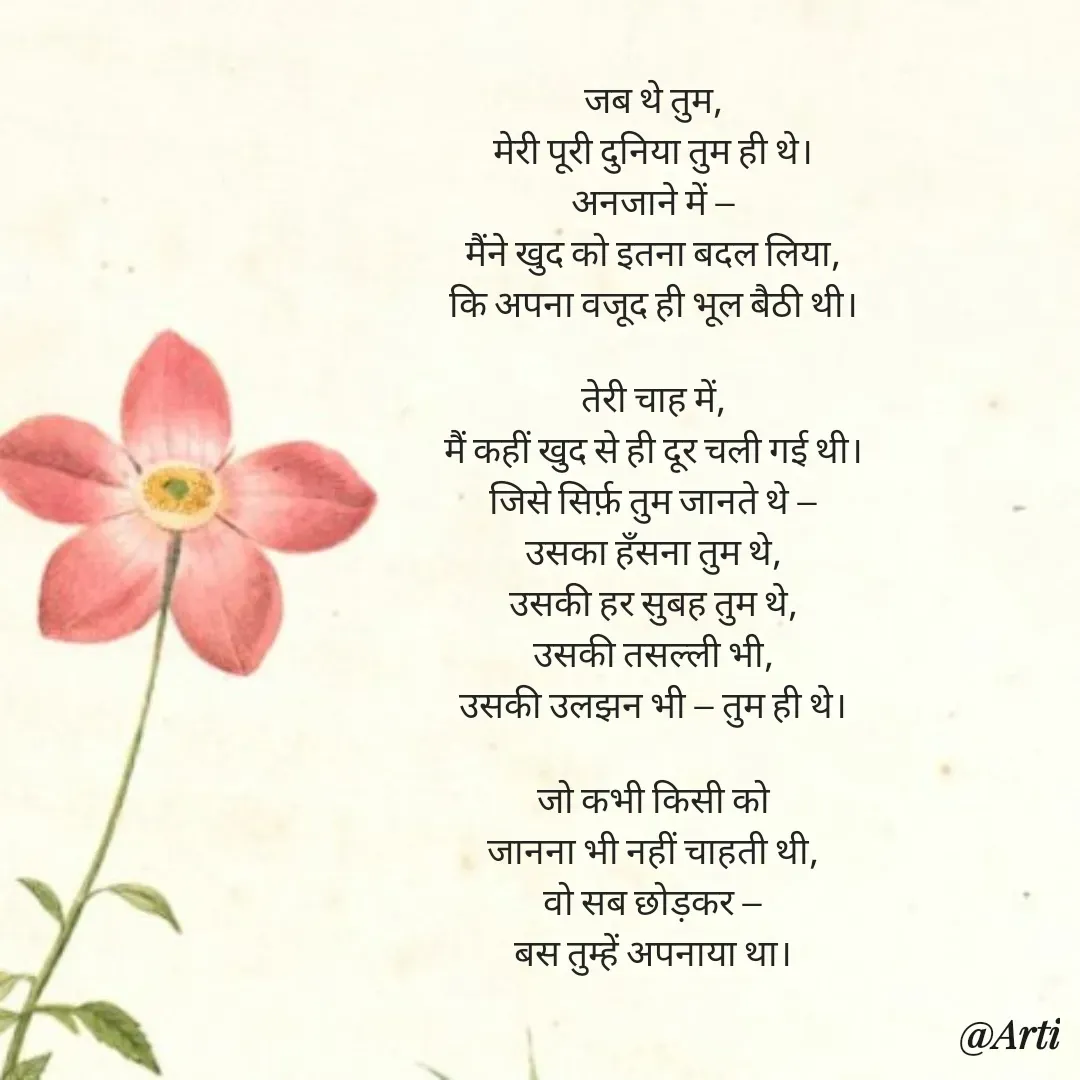 जब थे तुम,
मेरी पूरी दुनिया तुम ही थे।
अनजाने में –
मैंने खुद को इतना बदल लिया,
कि अपना वजूद ही भूल बैठी थी।
तेरी चाह में,
मैं कहीं खुद से ही दूर चली गई थी।
जिसे सिर्फ़ तुम जानते थे –
उसका हँसना तुम थे,
उसकी हर सुबह तुम थे,
उसकी तसल्ली भी,
उसकी उलझन भी – तुम ही थे।
जो कभी किसी को
जानना भी नहीं चाहती थी,
वो सब छोड़कर –
बस तुम्हें अपनाया था।
@Arti